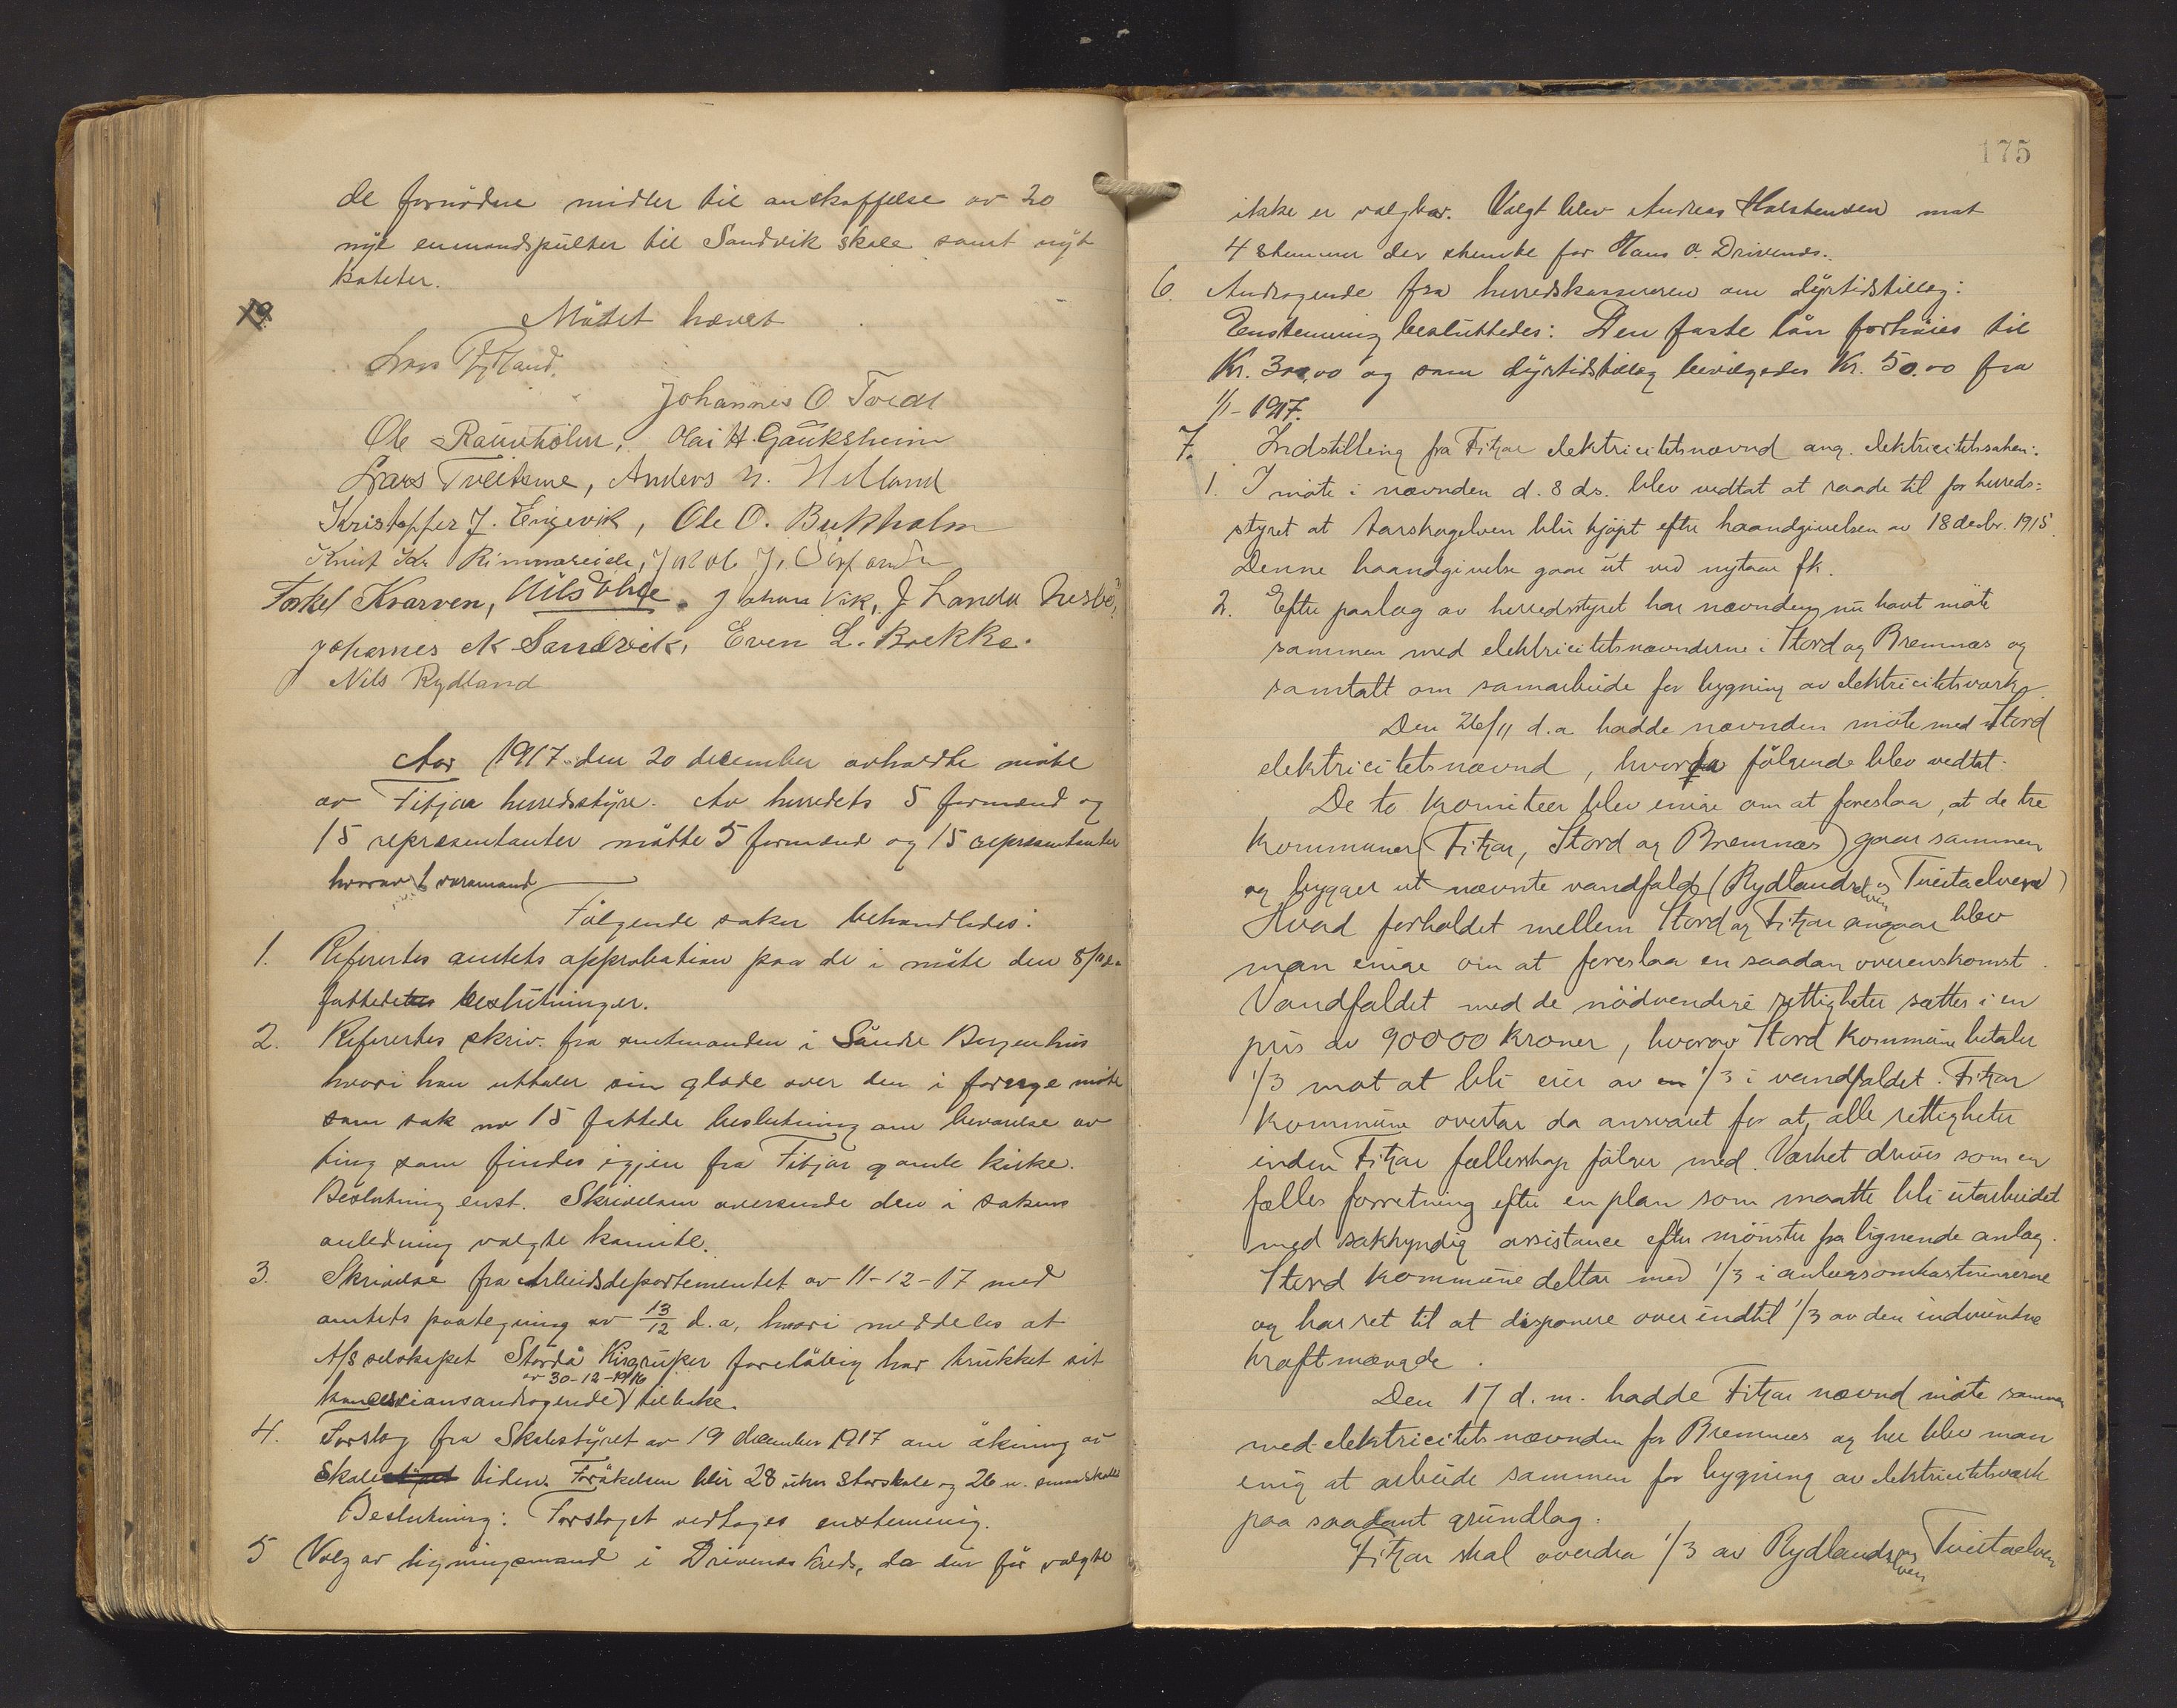 de fornödne midler til anskaffelse av 20
nye enmandspulter til Sandvik skole samt nyt
kateter.
19.
Mötet hævet
Lars Rydland.
Johannes O. Tveit
Ole Raunholm, Olai H. Gauksheim
Lars Tveiterne, Anders N. Helland
Kristoffer J. Engevik, Ole O. Bukholm
Knut Kr Rimmereide, Jakob J.
Torkel Kvarven, Nils Johan Vik, J Landa Nesbö,
Johannes M Sandvik, Even L. Brekke.
Nils Rydland
Aar 1917 den 20 december avholdte möte
av Fitjar herredsstyre. Av herredets 5 formænd og
15 repræsentanter mötte 5 formænd og 15 repræsentanter
hvorav 1 varamand
Følgende saker behandledes:
1. Referertes amtets approbation paa de i möte den 8/11 d.a
fattede beslutninger.
2. Referertes skriv. fra amtmanden i Söndre Bergenhus
hvori han uttaler sin glæde over den i forrige möte
som sak no 15 fattede beslutning om bevarelse av
ting som findes igjen fra Fitjar gamle kirke.
Beslutning enst. Skrivelsen oversende den i sakens
anledning valgte komite.
3. Skrivelse fra Arbeidsdepartementet av 11-12-17 med
amtets paategning av 13/12 d.a, hvori meddeles at
A/S selskapet Stordö Kisgruber foreløbig har trukket sit
av 30-12-1916
koncessionsandragende tilbake.
4. Forslag fra Skolestyret av 19 december 1917 om økning av
Skoletiden. Forøkelsen blir 28 uker storskole og 26 u. smaaskole
Beslutning: Forslaget vedtages enstemmig.
5 Valg av ligningsmand i Drivenes kreds, da den för valgte
175
ikke er valgbar. Valgt blev Andreas Halstensen mot
4 stemmer der stemte for Hans O. Drivenes.
6. Andragende fra herredskassereren om dyrtidstillæg:
Enstemmig besluttedes: Den faste lön forhöies til
Kr. 300,00 og som dyrtidstillæg bevilgedes Kr. 50.00 fra
1/1-1917.
7. Indstilling fra Fitjar elektricitetsnævnd ang. elektricitetssaken:
1. I möte i nævnden d. 8 ds. blev vedtat at raade til for herreds=
styret at Aarskogelven blir kjöpt efter haandgivelsen av 18 decbr. 1915
Denne haandgivelse gaar ut ved nytaar fk.
2. Efter paalæg av herredsstyret har nævnden nu havt möte
sammen med elektricitetsnævnderne i Stord og Bremnes og
samtalt om samarbeide for bygning av elektricitetsverk.
Den 26/11 d.a hadde nævnden möte med Stord
elektricitetsnævnd, hvorfra fölgende blev vedtat:
De to komiteer blev enige om at foreslaa, at de tre
kommuner (Fitjar, Stord og Bremnes) gaar sammen
og bygger ut nævnte vandfald (Rydlandselven og Tveitaelven)
Hvad forholdet mellem Stord og Fitjar angaar blev
man enige om at foreslaa en saadan overenskomst.
Vandfaldet med de nödvendige rettigheter sættes i en
pris av 90000 kroner, hvorav Stord kommune betaler
1/3 mot at bli eier av en 1/3 i vandfaldet. Fitjar
kommune overtar da ansvaret for at alle rettigheter
inden Fitjar fællesskap fölger med. Verket drives som en
fælles forretning efter en plan som maatte bli utarbeidet
med sakkyndig assistance efter mönster fra lignende anlæg.
Stord kommune deltar med 1/3 i anlægsomkostningerne
og har ret til at disponere over indtil 1/3 av den indvundne
kraftmængde.
Den 17 d.m. hadde Fitjar nævnd möte sammen
med elektricitetsnævnden for Bremnes og her blev man
enig at arbeide sammen for bygning av elektricitetsverk
paa saadant grundlag:
Fitjar skal overdra 1/3 av Rydlandselven og Tveitaelven